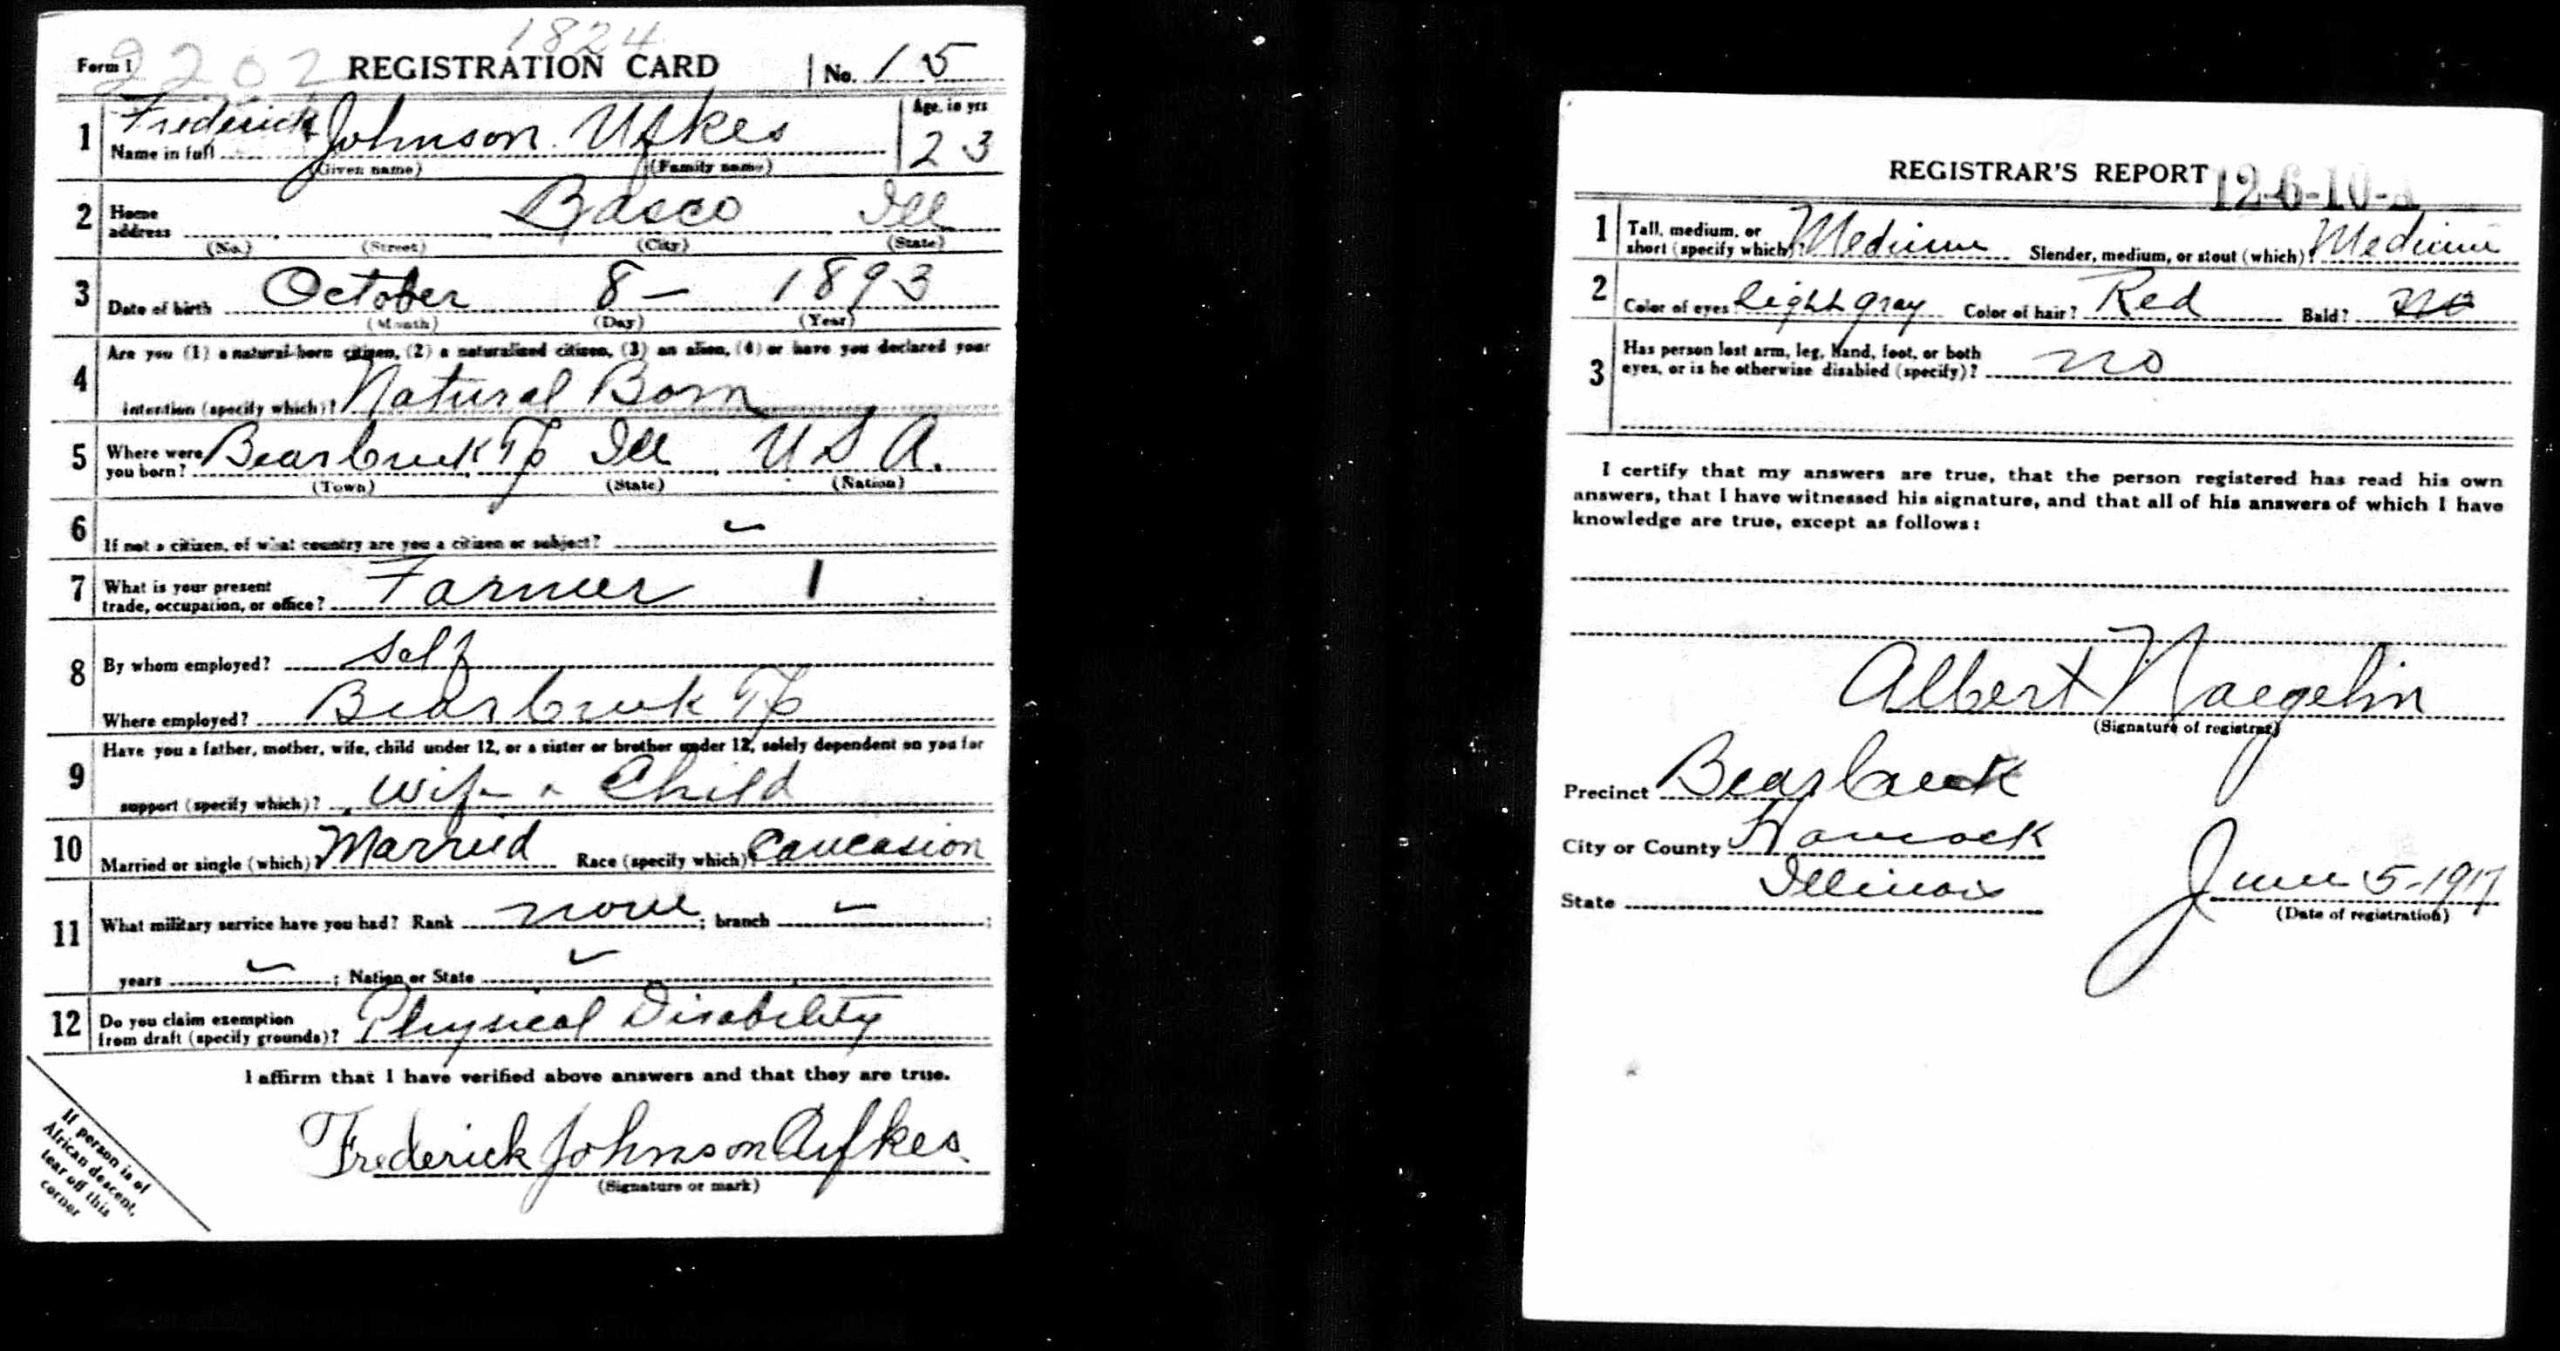 1824
Form 1 2202 REGISTRATION CARD No. 15
1 Name in full Frederick Johnson Ufkes Age, in yrs 23
(Given name) (Family name)
2 Home address Basco Ill
(No.) (Street) (City) (State)
3 Date of birth October 8 - 1893
(Month) (Day) (Year)
4 Are you (1) a natural-born citizen, (2) a naturalized citizen, (3) an alien, (4) or have you declared your
intention (specify which)? Natural Born
5 Where were you born? Bearcreek Tp Ill U S A.
(Town) (State) (Nation)
6 If not a citizen, of what country are you a citizen or subject? -
7 What is your present trade, occupation, or office? Farmer 1
8 By whom employed? Self
Where employed? Bearcreek Tp
9 Have you a father, mother, wife, child under 12, or a sister or brother under 12, solely dependent on you for
support (specify which)? Wife + Child
10 Married or single (which)? Married Race (specify which)? Caucasion
11 What military service have you had? Rank none ; branch - ;
years - ; Nation or State -
12 Do you claim exemption from draft (specify grounds)? Physical Disability
I affirm that I have verified above answers and that they are true.
Frederick Johnson Ufkes.
(Signature or mark)
If person is of
African descent,
tear off this
corner
REGISTRAR'S REPORT 12-6-10-A
1 Tall, medium, or short (specify which)? Medium Slender, medium, or stout (which)? Medium
2 Color of eyes? Light gray Color of hair? Red Bald? no
3 Has person lost arm, leg, hand, foot, or both
eyes, or is he otherwise disabled (specify)? no
I certify that my answers are true, that the person registered has read his own
answers, that I have witnessed his signature, and that all of his answers of which I have
knowledge are true, except as follows:
Albert Naegelin
(Signature of registrar)
Precinct Bearcreek
City or County Hancock
State Illinois
June 5-1917
(Date of registration)